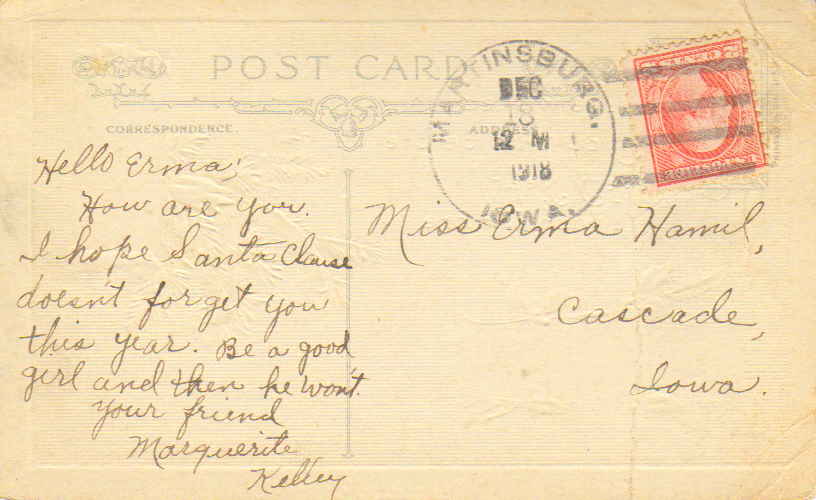 POST CARD
CORRESPONDENCE
ADDRESS
MARTINSBURG,
DEC
12 M
1918
IOWA.
Hello Erma;
How are you.
I hope Santa Clause
doesn't forget you
this year. Be a good
girl and then he won't.
Your friend
Marguerite
Kelley
Miss Erma Hamil,
Cascade,
Iowa.